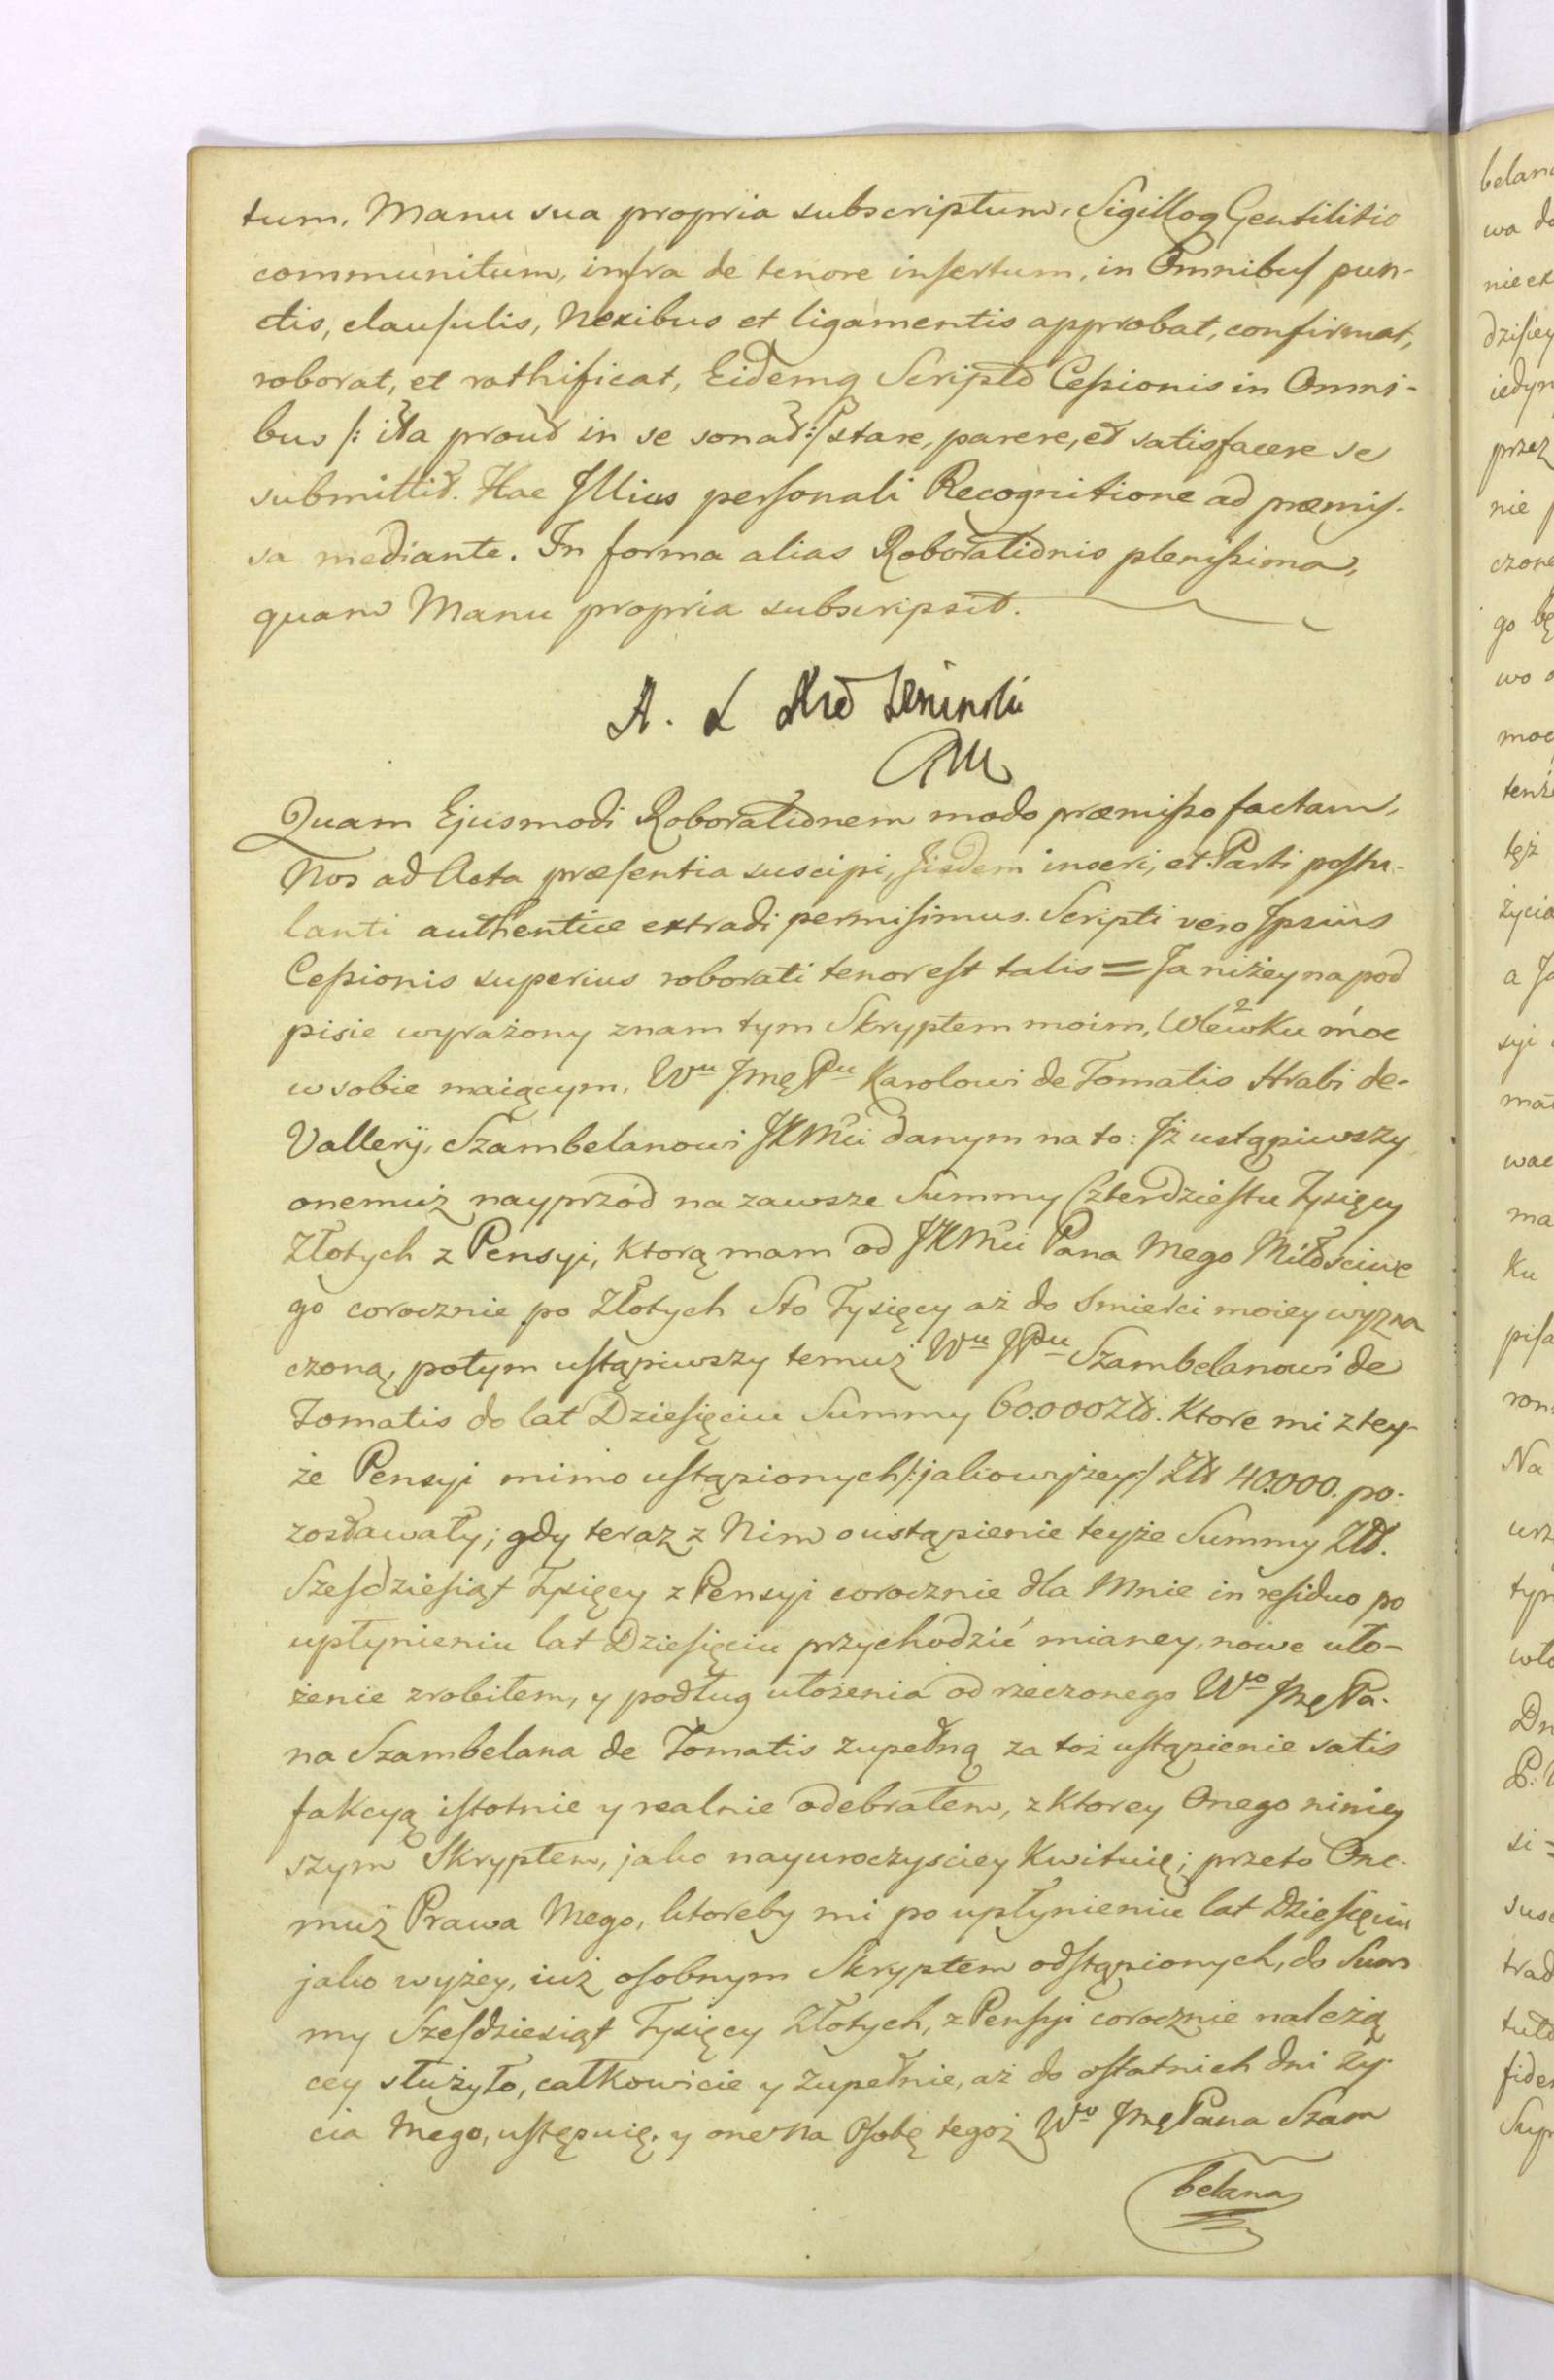 tum, Manu sua propria subscriptum, Sigilloq Gentilitio
communitum, infra de tenore insertum, in Omnibus pun-
ctis, clausulis, Nexibus et ligamentis approbat, confirmat,
roborat, et rathificat, Eidemq Scripto Cessionis in Omni-
bus /: ita prout in se sonat :/ stare, parere, et satisfacere se
submittit. Hac Illius personali Recognitione ad præmis-
sa mediante. In forma alias Roborationis plenissima,
quam Manu propria subscripsit.
A. Ł
Quam Ejusmodi Roborationem modo præmisso factam,
Nos ad Acta præsentia suscipi, Iisdem inseri, et Parti postu-
lanti authentice extradi permisimus. Scripti vero Ipsius
Cessionis superius roborati tenor est talis = Ja niżey na pod
pisie wyrażony znam tym Skryptem moim, Wlewku moc
w sobie maiącym, Wu Jmę Pu Karolowi de Tomatis Hrabi de-
Vallery, Szambelanowi JKMci danym na to: Iż ustąpiwszy
onemuż nayprzód na zawsze Summy Czterdziestu Tysięcy
Złotych z Pensyi, ktorą mam od JKMci Pana Mego Miłościwe
go corocznie po Złotych Sto Tysięcy aż do śmierci moiey wyzna
czoną, potym ustąpiwszy temuż Wu JPu Szambelanowi de
Tomatis do lat Dziesięciu Summy 60.000 Zł. Ktore mi z tey-
że Pensyi mimo ustąpionych /: jako wyżey :/ Zł 40.000. po-
zostawały; gdy teraz z Nim o ustąpienie teyże Summy Zł.
Sześdziesiąt Tysięcy z Pensyi corocznie dla Mnie in residuo po
upłynieniu lat Dziesięciu przychodzić mianey, nowe uło-
żenie zrobiłem, y podług ułożenia od rzeczonego Wo Jmę Pa-
na Szambelana de Tomatis zupełną za toż ustąpienie satis
fakcyą istotnie y realnie odebrałem, z ktorey Onego niniey
szym Skryptem, jako nayuroczysciey kwituię; przeto One-
muż Prawa Mego, ktoreby mi po upłynieniu lat Dziesięciu
jako wyżey, iuż osobnym Skryptem odstąpionych, do Sum
my Sześdziesiąt Tysięcy Złotych, z Pensyi corocznie należą
cey służyło, całkowicie y zupełnie, aż do ostatnich dni Ży-
cia Mego, ustępuię, y one na Osobę tegoż Wo Jmę Pana Szam
belana